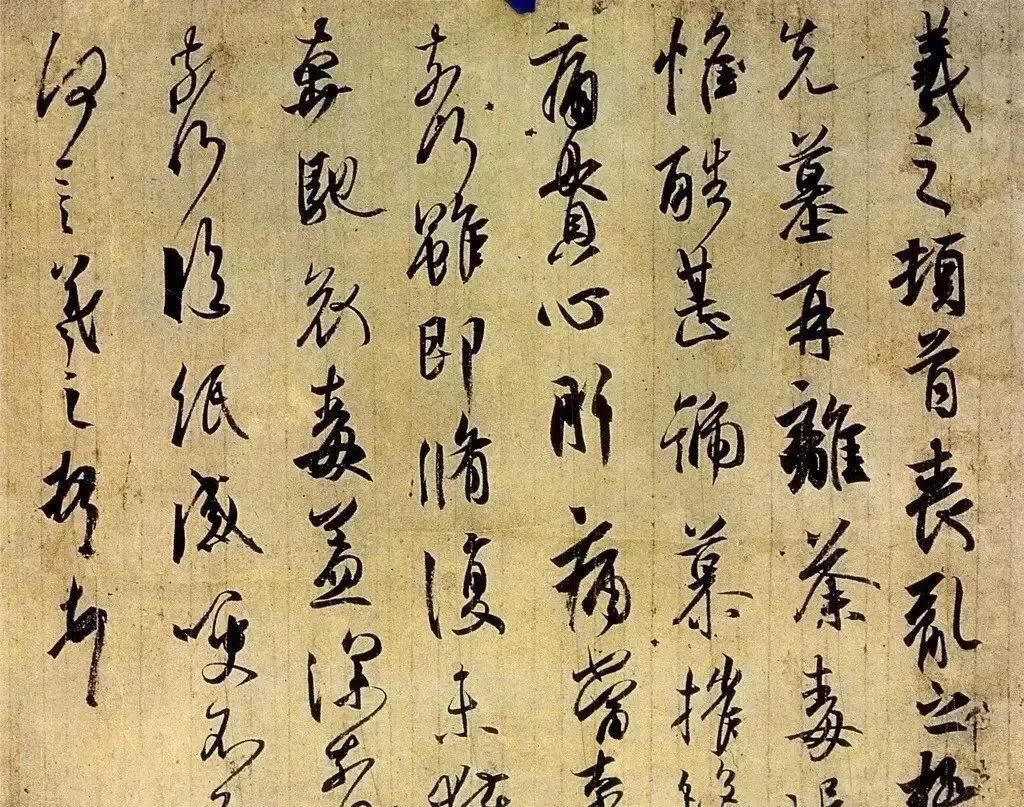 羲之頓首喪亂之極
先墓再離荼毒追
惟酷甚號慕摧絕
痛貫心肝痛當柰
柰何雖即脩復未獲
奔馳哀毒益深柰
柰何臨紙感哽不
何言羲之頓首